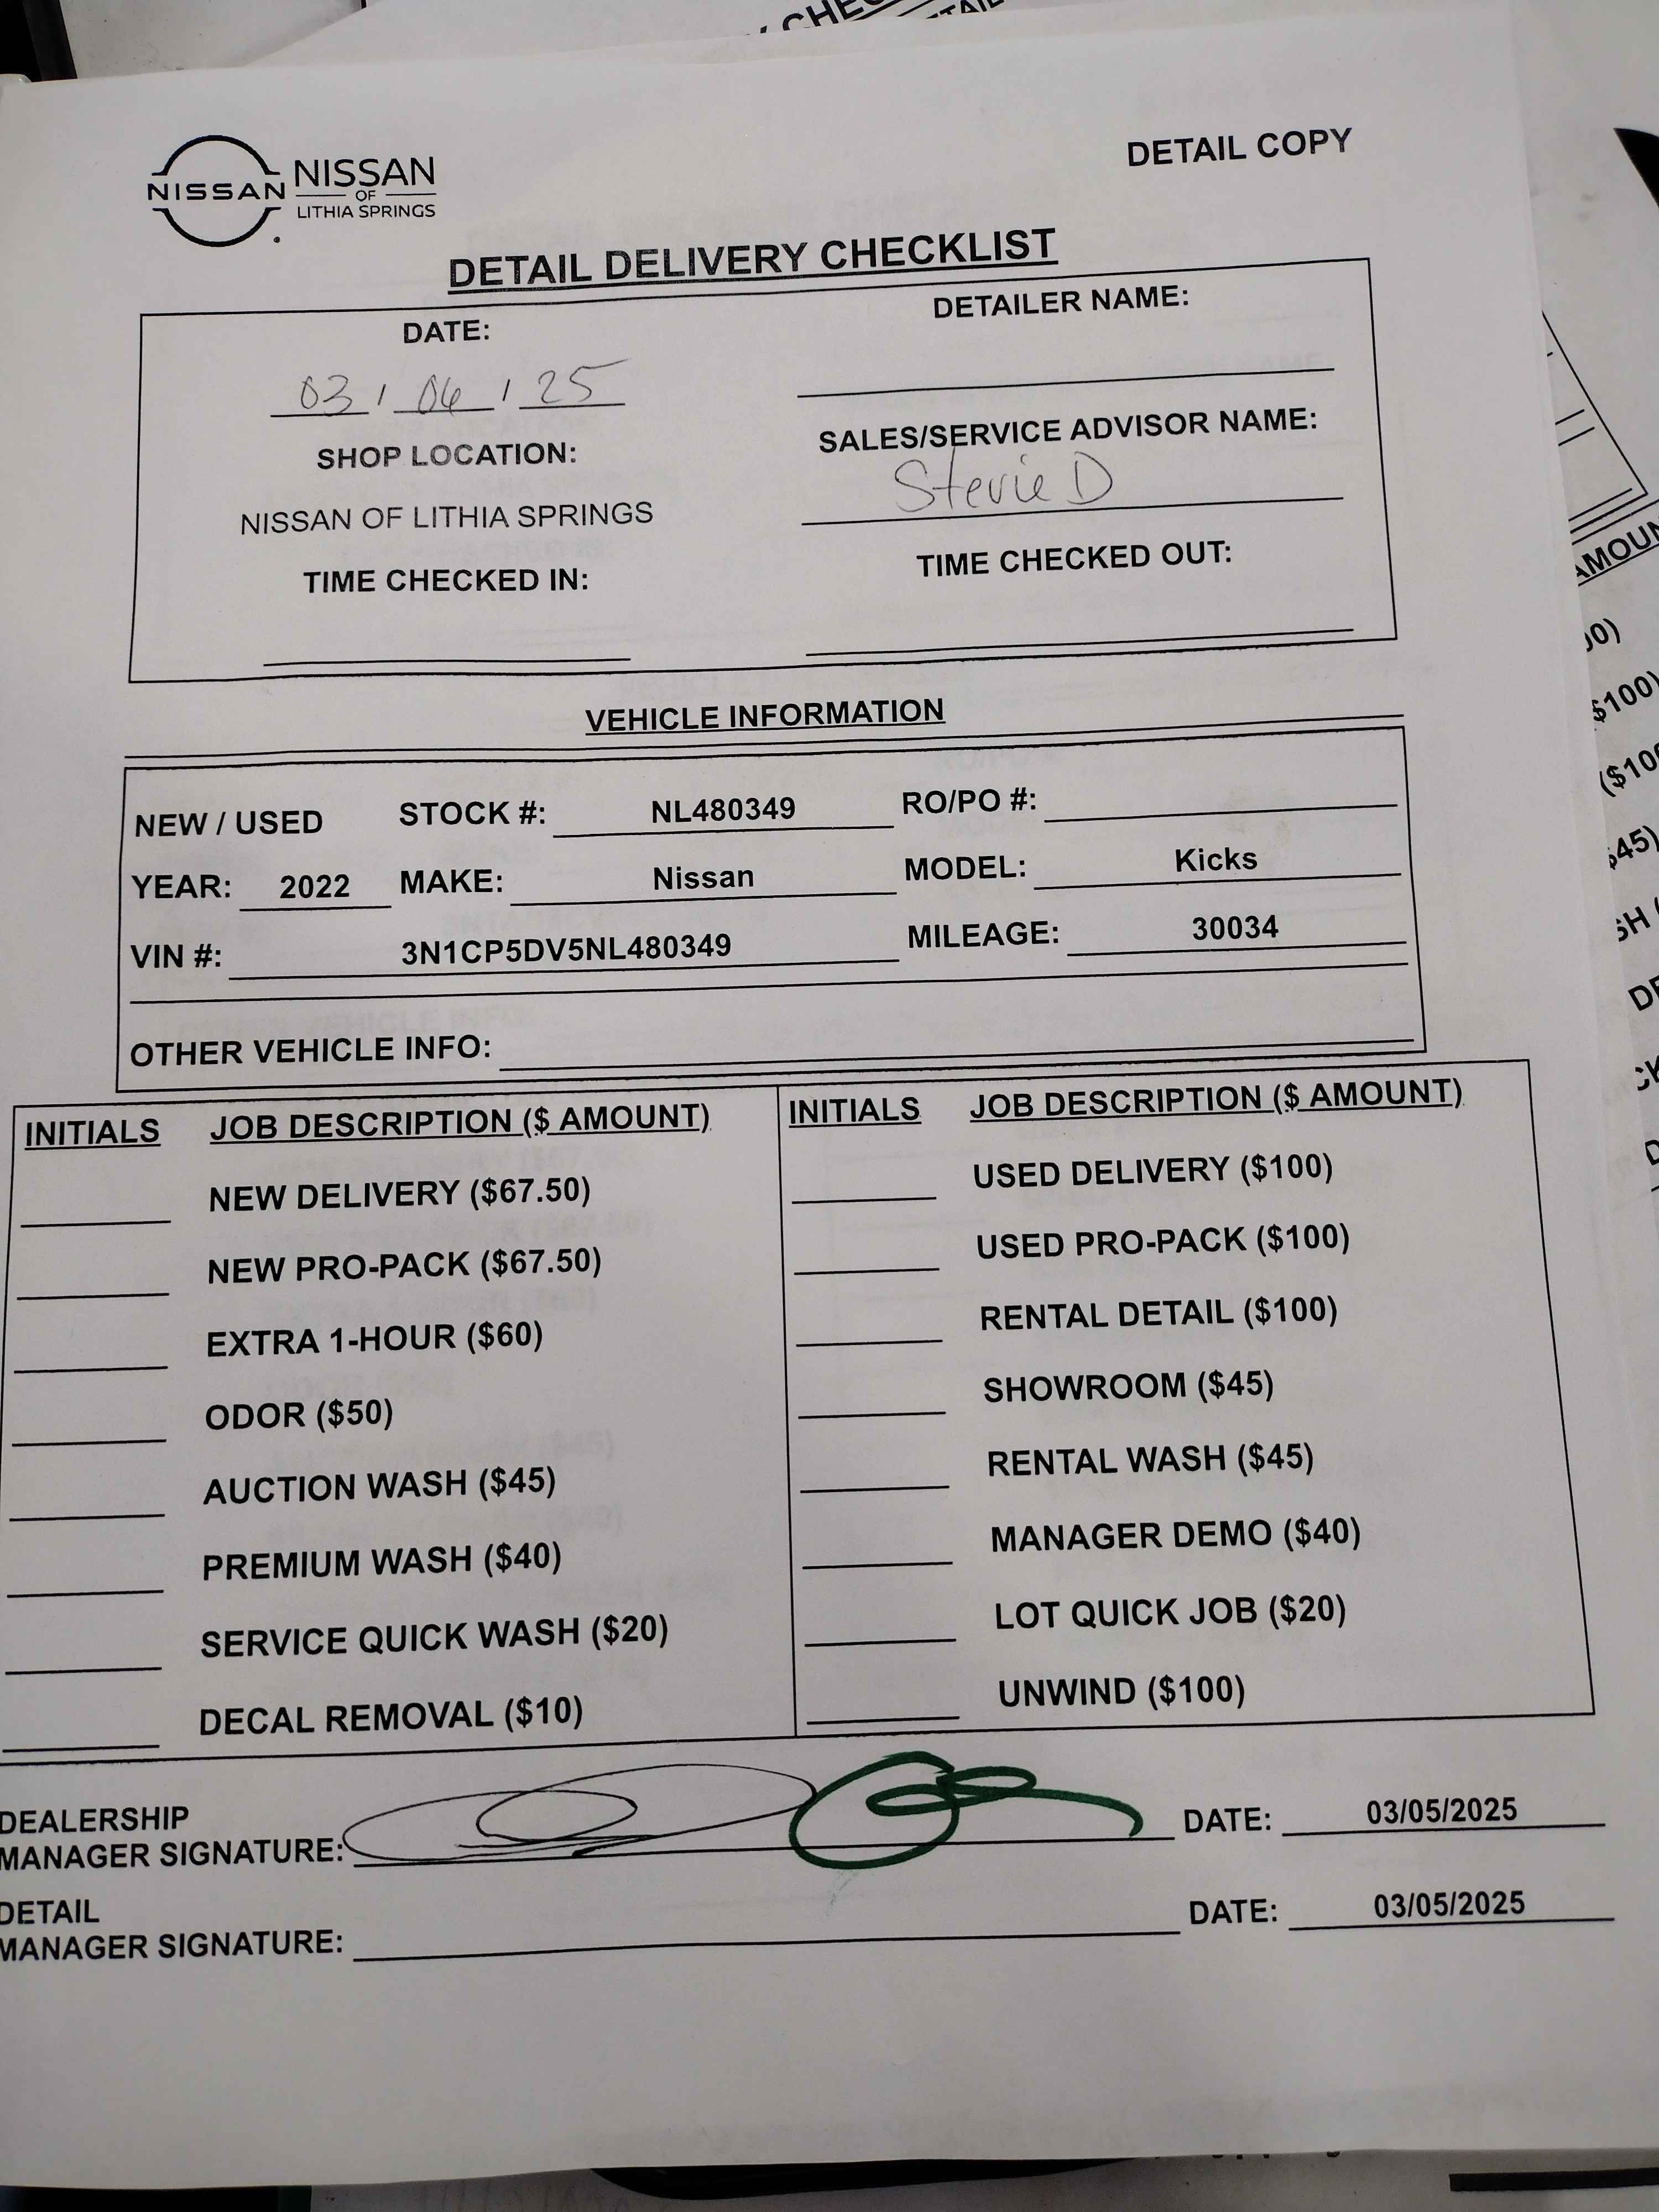 CHE
TAIL
DETAIL COPY
NISSAN
NISSAN
OF
LITHIA SPRINGS
DETAIL DELIVERY CHECKLIST
DATE:
03 / 06 / 25
DETAILER NAME:
SHOP LOCATION:
NISSAN OF LITHIA SPRINGS
SALES/SERVICE ADVISOR NAME:
Stevie D
TIME CHECKED IN:
TIME CHECKED OUT:
VEHICLE INFORMATION
NEW / USED STOCK #: NL480349 RO/PO #:
YEAR: 2022 MAKE: Nissan MODEL: Kicks
VIN #: 3N1CP5DV5NL480349 MILEAGE: 30034
OTHER VEHICLE INFO:
INITIALS JOB DESCRIPTION ($ AMOUNT) INITIALS JOB DESCRIPTION ($ AMOUNT)
NEW DELIVERY ($67.50) USED DELIVERY ($100)
NEW PRO-PACK ($67.50) USED PRO-PACK ($100)
EXTRA 1-HOUR ($60) RENTAL DETAIL ($100)
ODOR ($50) SHOWROOM ($45)
AUCTION WASH ($45) RENTAL WASH ($45)
PREMIUM WASH ($40) MANAGER DEMO ($40)
SERVICE QUICK WASH ($20) LOT QUICK JOB ($20)
DECAL REMOVAL ($10) UNWIND ($100)
DEALERSHIP
MANAGER SIGNATURE: DATE: 03/05/2025
DETAIL
MANAGER SIGNATURE: DATE: 03/05/2025
AMOUN
$100)
($10
$45)